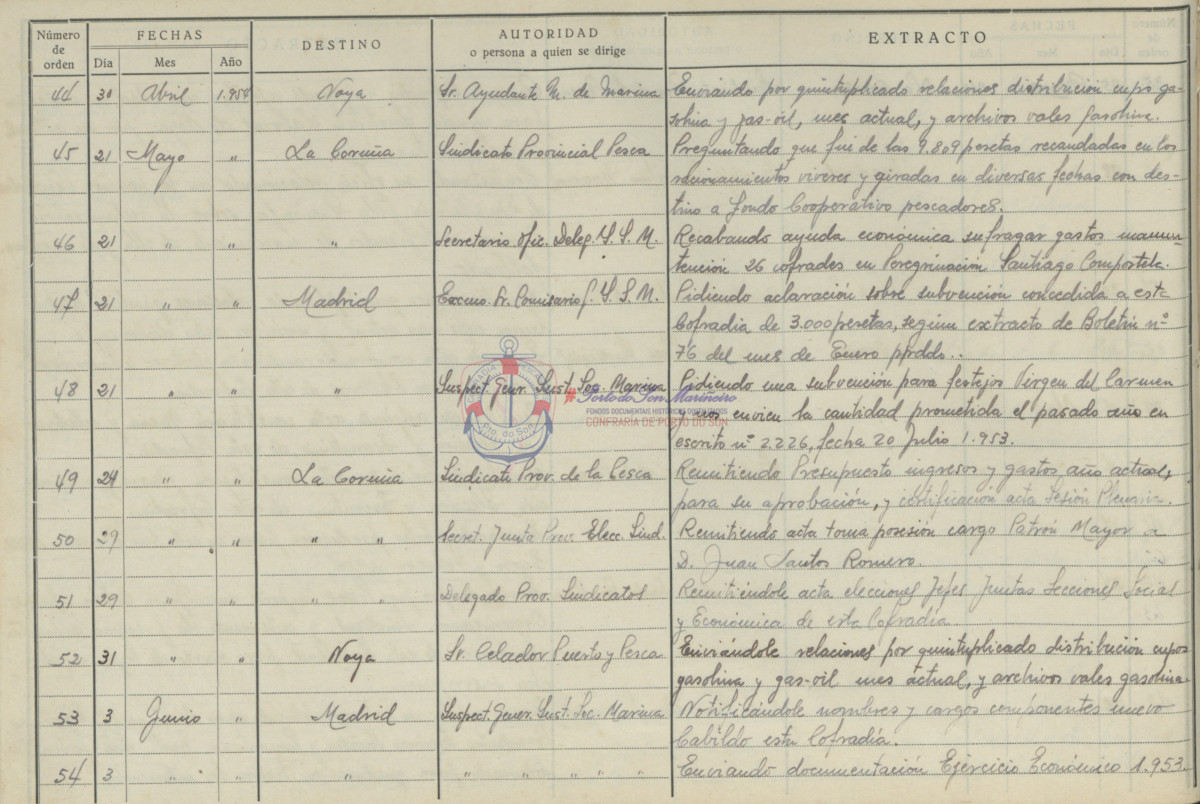 Número de orden FECHAS DESTINO AUTORIDAD o persona a quien se dirige EXTRACTO
Dia Mes Año
44 30 Abril 1.954 Noya Sr. Ayudante M. de Marina Enviando por quintuplicado relaciones distribución cupo ga-
solina y gas-oil, mes actual, y archivos vales gasolina.
45 21 Mayo " La Coruña Sindicato Provincial Pesca Preguntando que fué de las 9.809 pesetas recaudadas en los
racionamientos viveres y giradas en diversas fechas con des-
tino a Fondo Cooperativo pescadores.
46 21 " " " Secretario Ofic. Deleg. I. S. M. Recabando ayuda económica sufragar gastos manun-
tención 26 cofrades en Peregrinación Santiago Compostela.
47 21 " " Madrid Excmo. Sr. Comisario G. I. S. M. Pidiendo aclaración sobre subvención concedida a esta
Cofradia de 3.000 pesetas, según extracto de Boletin nº
76 del mes de Enero pprddo..
48 21 " " " Inspect. Gener. Inst. Soc. Marina Pidiendo una subvención para festejos Virgen del Carmen
y nos envien la cantidad prometida el pasado año en
escrito nº 2.226, fecha 20 Julio 1.953.
49 24 " " La Coruña Sindicato Prov. de la Pesca Remitiendo Presupuesto ingresos y gastos año actual,
para su aprobación, y certificación acta Sesión Plenaria.
50 29 " " " " Secret. Junta Prov. Elecc. Sind. Remitiendo acta toma posesión cargo Patrón Mayor a
D. Juan Santos Romero.
51 29 " " " " Delegado Prov. Sindicatos Remitiéndole acta elecciones Jefes Juntas Secciones Social
y Económica de esta Cofradía
52 31 " " Noya Sr. Celador Puerto y Pesca Enviándole relaciones por quintuplicado distribución cupos
gasolina y gas-oil mes actual, y archivos vales gasolina
53 3 Junio " Madrid Inspect. Gener. Inst. Soc. Marina Notificándole nombres y cargos componentes nuevo
Cabildo esta Cofradía.
54 3 " " " " " " " " Enviando documentación Ejercicio Económico 1.953.
Pto. do Son
#Porto do Son Mariñeiro
FONDOS DOCUMENTAIS HISTÓRICOS DIXITALIZADOS
CONFRARÍA DE PORTO DO SON